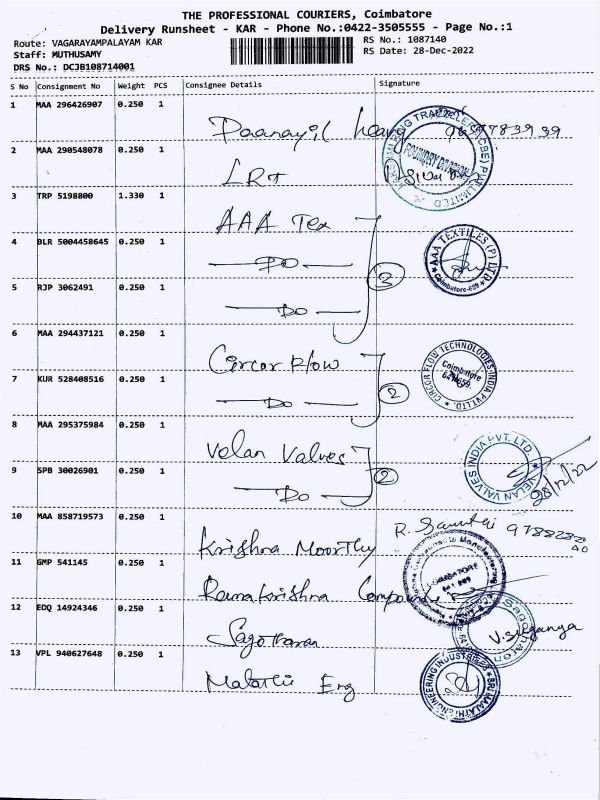 THE PROFESSIONAL COURIERS, Coimbatore
Delivery Runsheet - KAR - Phone No.:0422-3505555 - Page No.:1
Route: VAGARAYAMPALAYAM KAR
RS No.: 1087140
Staff: MUTHUSAMY
RS Date: 28-Dec-2022
DRS No.: DCJB108714001
S No Consignment No Weight PCS Consignee Details Signature
1 MAA 296426907 0.250 1
2 MAA 290548078 0.250 1 LRT
3 TRP 5198800 1.330 1 AAA Tex
4 BLR 5004458645 0.250 1 DO
AAA TEXTILES (P) LTD
Coimbatore-659
3
5 RJP 3062491 0.250 1 DO
6 MAA 294437121 0.250 1 Circor Flow
CIRCOR FLOW TECHNOLOGIES INDIA PVT LTD.
Coimbatore
7 KUR 528408516 0.250 1 DO
2
8 MAA 295375984 0.250 1 Velan Valves
VELAN VALVES INDIA PVT. LTD.
28/12/22
9 SPB 30026901 0.250 1 DO
2
10 MAA 858719573 0.250 1 Krishna Moorthy
11 GMP 541145 0.250 1 Ramakrishna
COIMBATORE
12 EDQ 14924346 0.250 1
13 VPL 940627648 0.250 1 Malathi Eng
SRI MALATHI ENGINEERING INDUSTRIES